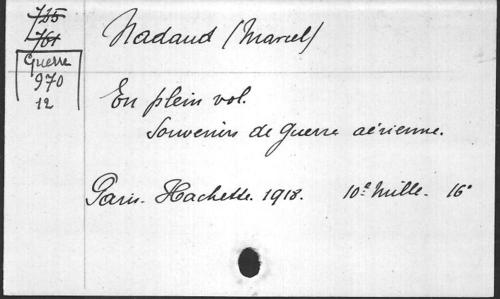 715
761
Guerre
970
12
Nadaud (Marcel)
En plein vol.
Souvenirs de guerre aérienne.
Paris. Hachette. 1918. 10e mille. 16°